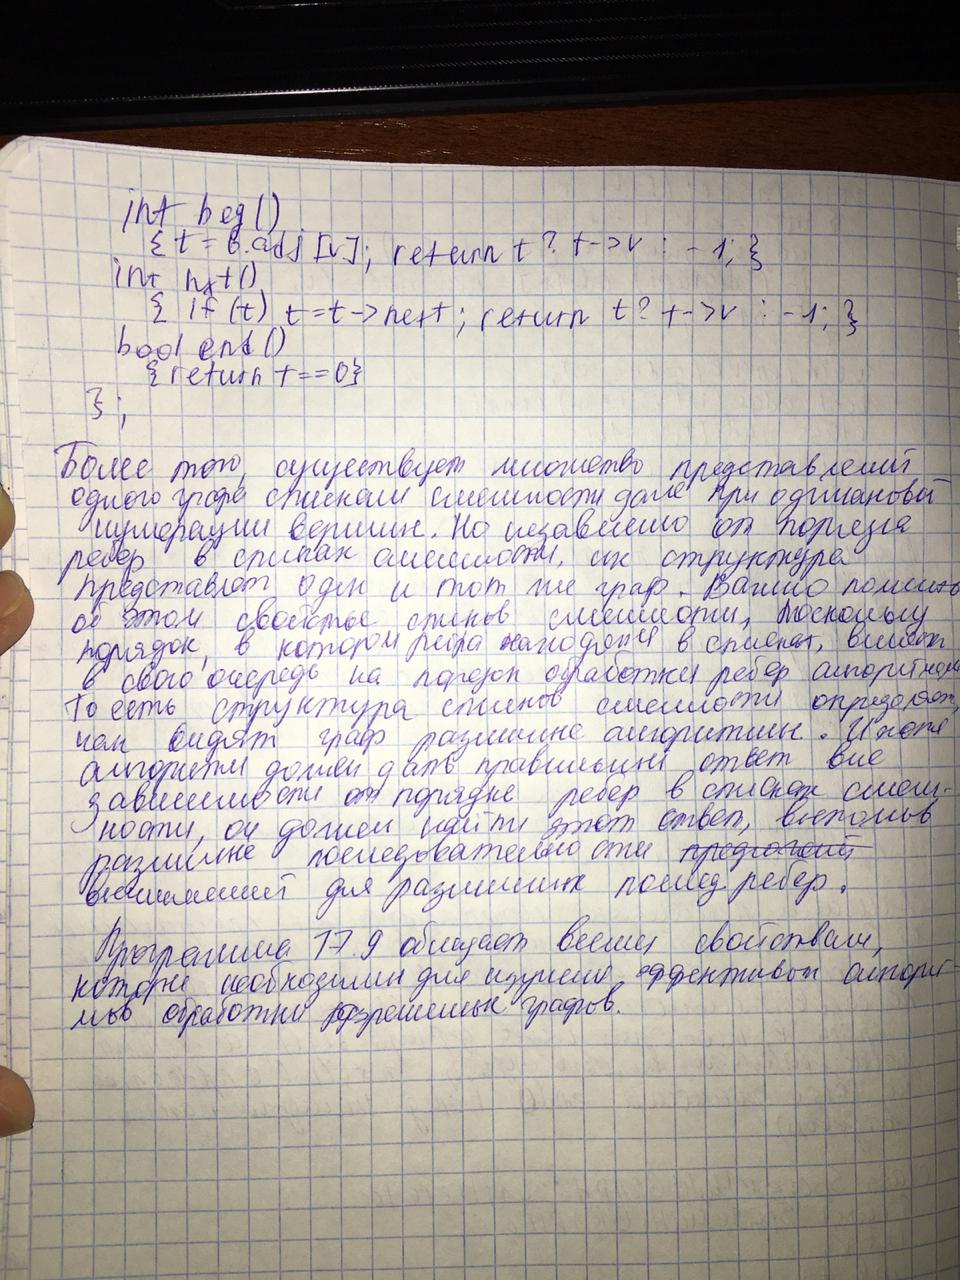 int beg()
{ t = G.adj[v]; return t ? t->v : -1; }
int nxt()
{ if (t) t=t->next; return t? t->v : -1; }
bool end()
{return t==0}
};
Более того, существует множество представлений
одного графа списками смежности даже при одинаковой
нумерации вершин. Но независимо от порядка
ребер в списках смежности, их структура
представляет один и тот же граф. Важно помнить
об этом свойстве списков смежности, поскольку
порядок, в котором ребра находятся в списках, влияет
в свою очередь на порядок обработки ребер алгоритмом
То есть структура списков смежности определяет,
как видят граф различные алгоритмы. И хотя
алгоритм должен дать правильный ответ вне
зависимости от порядка ребер в списках смеж-
ности, он должен найти этот ответ, выполнив
различные последовательности
вычислений для различных послед ребер.
Программа 17.9 обладает всеми свойствами,
которые необходимы для изучения эффективных алгорит-
мов обработки разреженных графов.